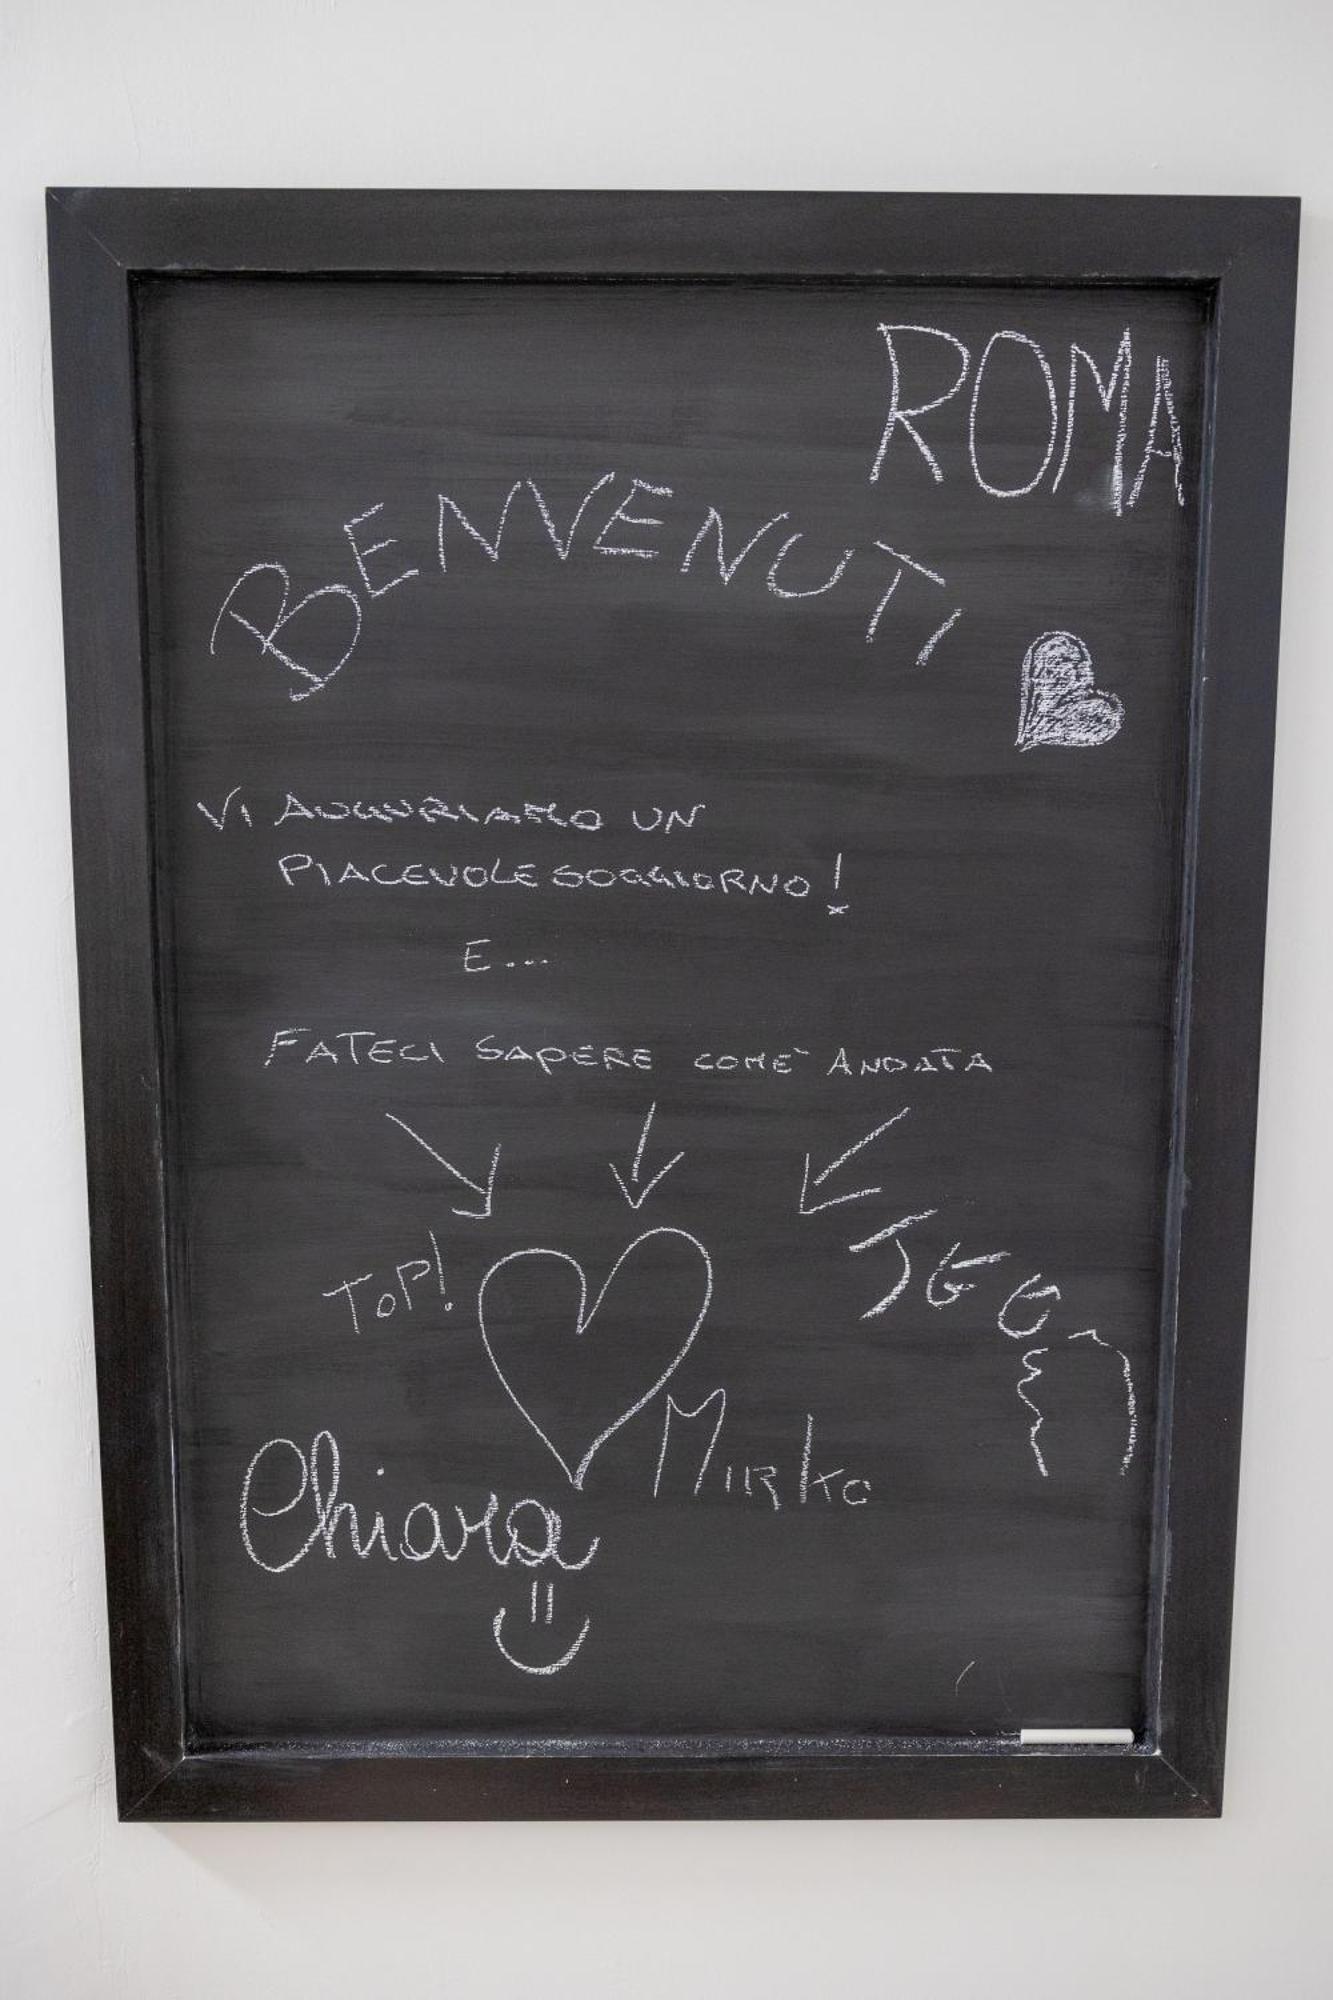 ROMA
BENVENUTI
VI AUGURIAMO UN
PIACEVOLE SOGGIORNO!
E...
FATECI SAPERE COME` ANDATA
TOP!
Mirko
Chiara